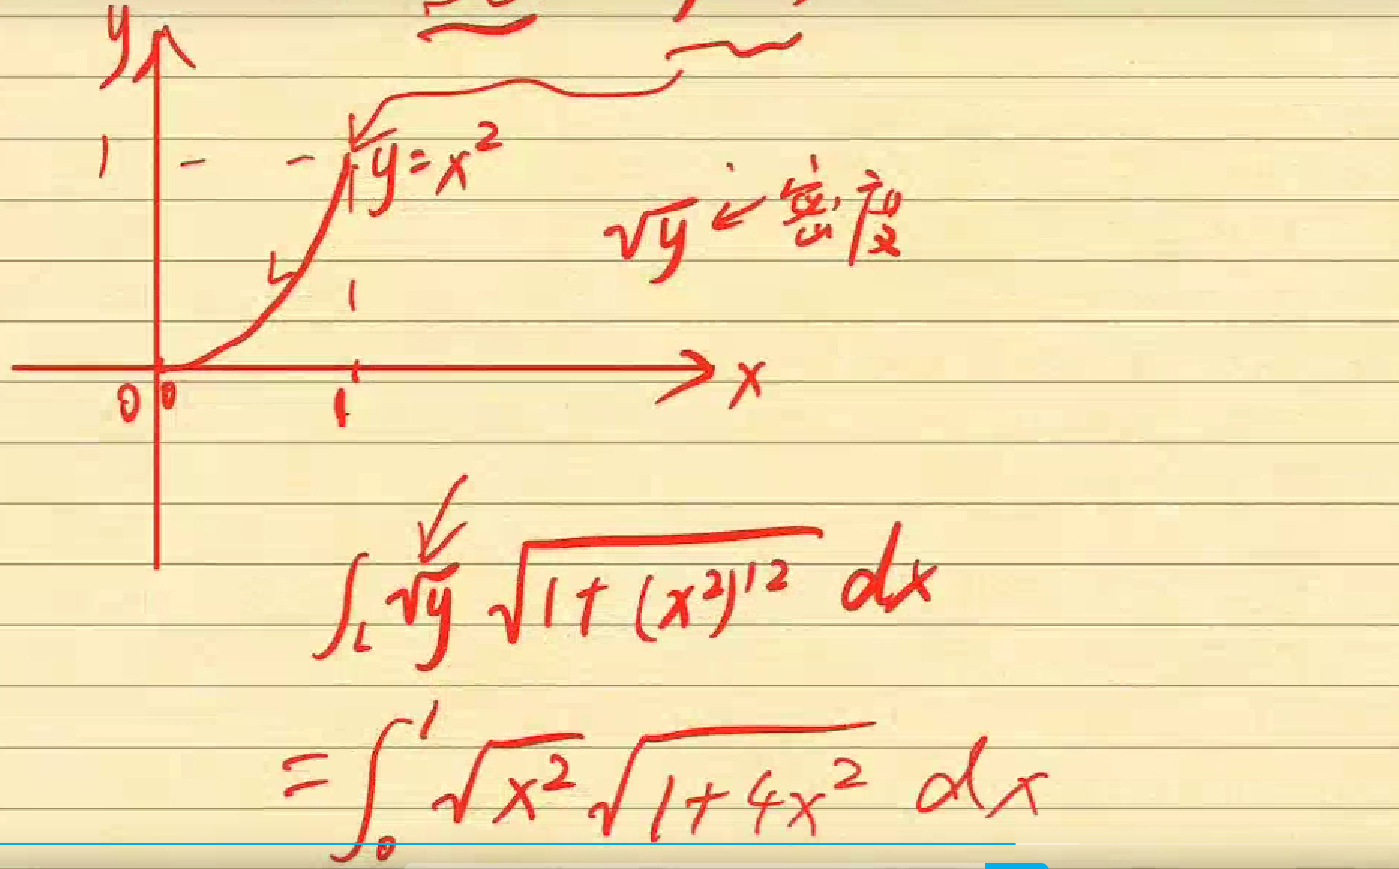 y
1
y=x²
√y ← 密度
L
1
0 0
1
x
∫_L √y √(1+(x²)'²) dx
= ∫₀¹ √(x²) √(1+4x²) dx